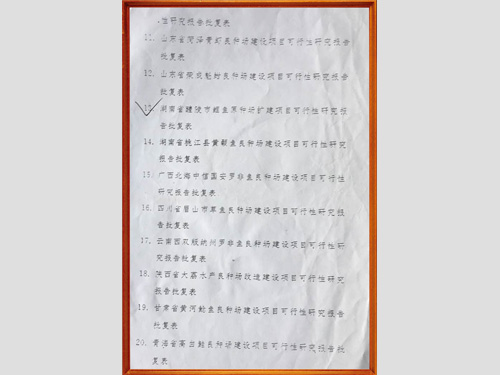 性研究报告批复表
11. 山东省菏泽青虾良种场建设项目可行性研究报告
批复表
12. 山东省荣成魁蚶良种场建设项目可行性研究报告
批复表
13. 湖南省醴陵市鲤鱼原种场扩建项目可行性研究报
告批复表
14. 湖南省桃江县黄颡鱼良种场建设项目可行性研究
报告批复表
15. 广西北海中信国安罗非鱼良种场建设项目可行性
研究报告批复表
16. 四川省眉山市草鱼良种场建设项目可行性研究报
告批复表
17. 云南西双版纳州罗非鱼良种场建设项目可行性研
究报告批复表
18. 陕西省大荔水产良种场改造建设项目可行性研究
报告批复表
19. 甘肃省黄河鲶鱼良种场建设项目可行性研究报告
批复表
20. 青海省高白鲑良种场建设项目可行性研究报告
批复表